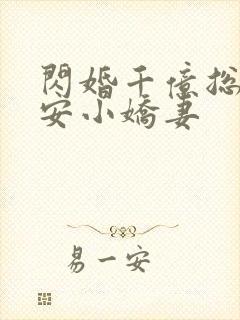 閃婚千億总
安小嬌妻
易一安